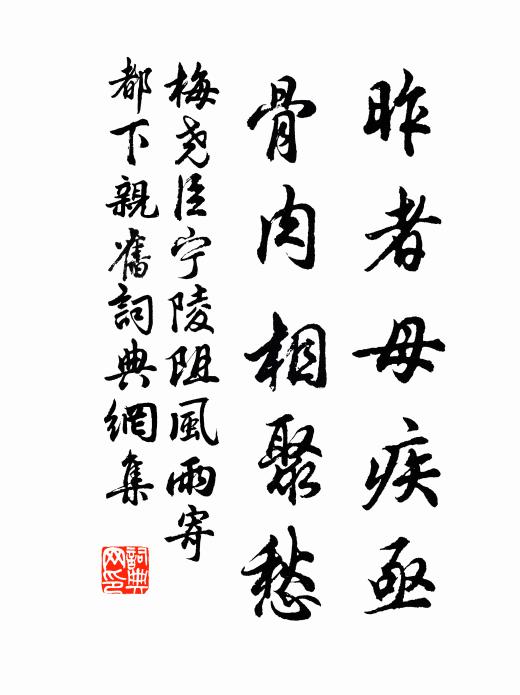 昨者母疾亟
骨肉相聚愁
梅尧臣宁陵阻風雨寄
都下親舊詞典網集
詞典網印